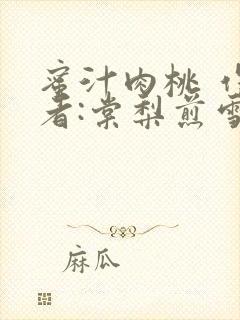 蜜汁肉桃 作
者:棠梨煎雪
麻瓜